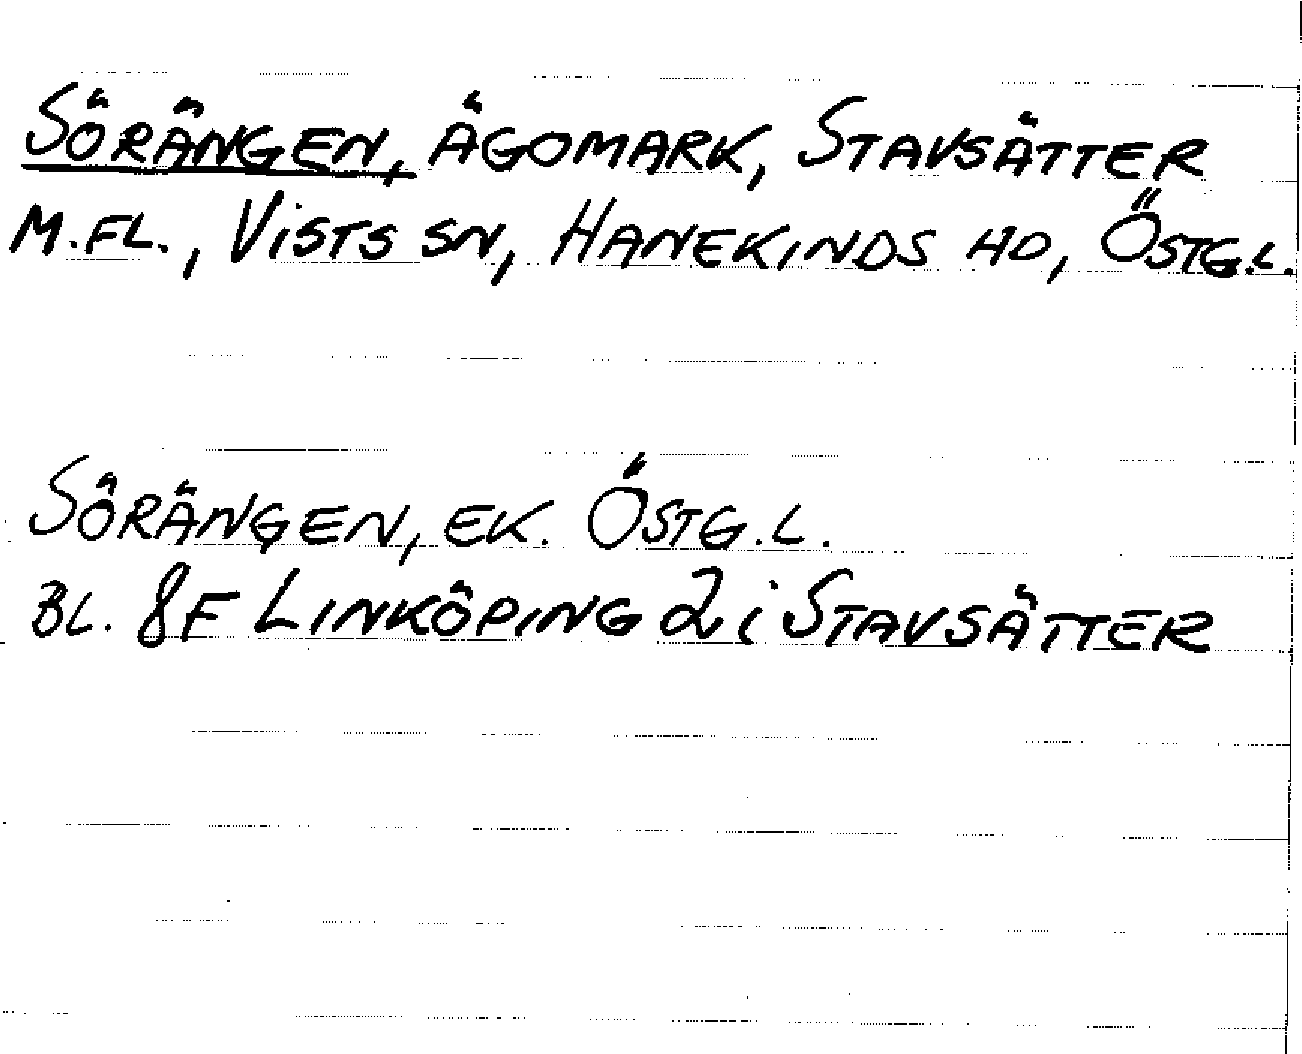 SÖRÄNGEN, ÄGOMARK, STAVSÄTTER
M.FL., VISTS SN, HANEKINDS HD, ÖSTG.L.
SÖRÄNGEN, EK. ÖSTG.L.
BL. 8F LINKÖPING 2i STAVSÄTTER